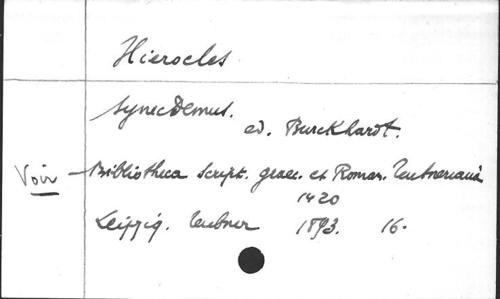 Hierocles
Synecdemus.
ed. Burckhardt.
Voir Bibliotheca script. graec. et Roman. Teubneriana
1420
Leipzig. Teubner 1893. 16.